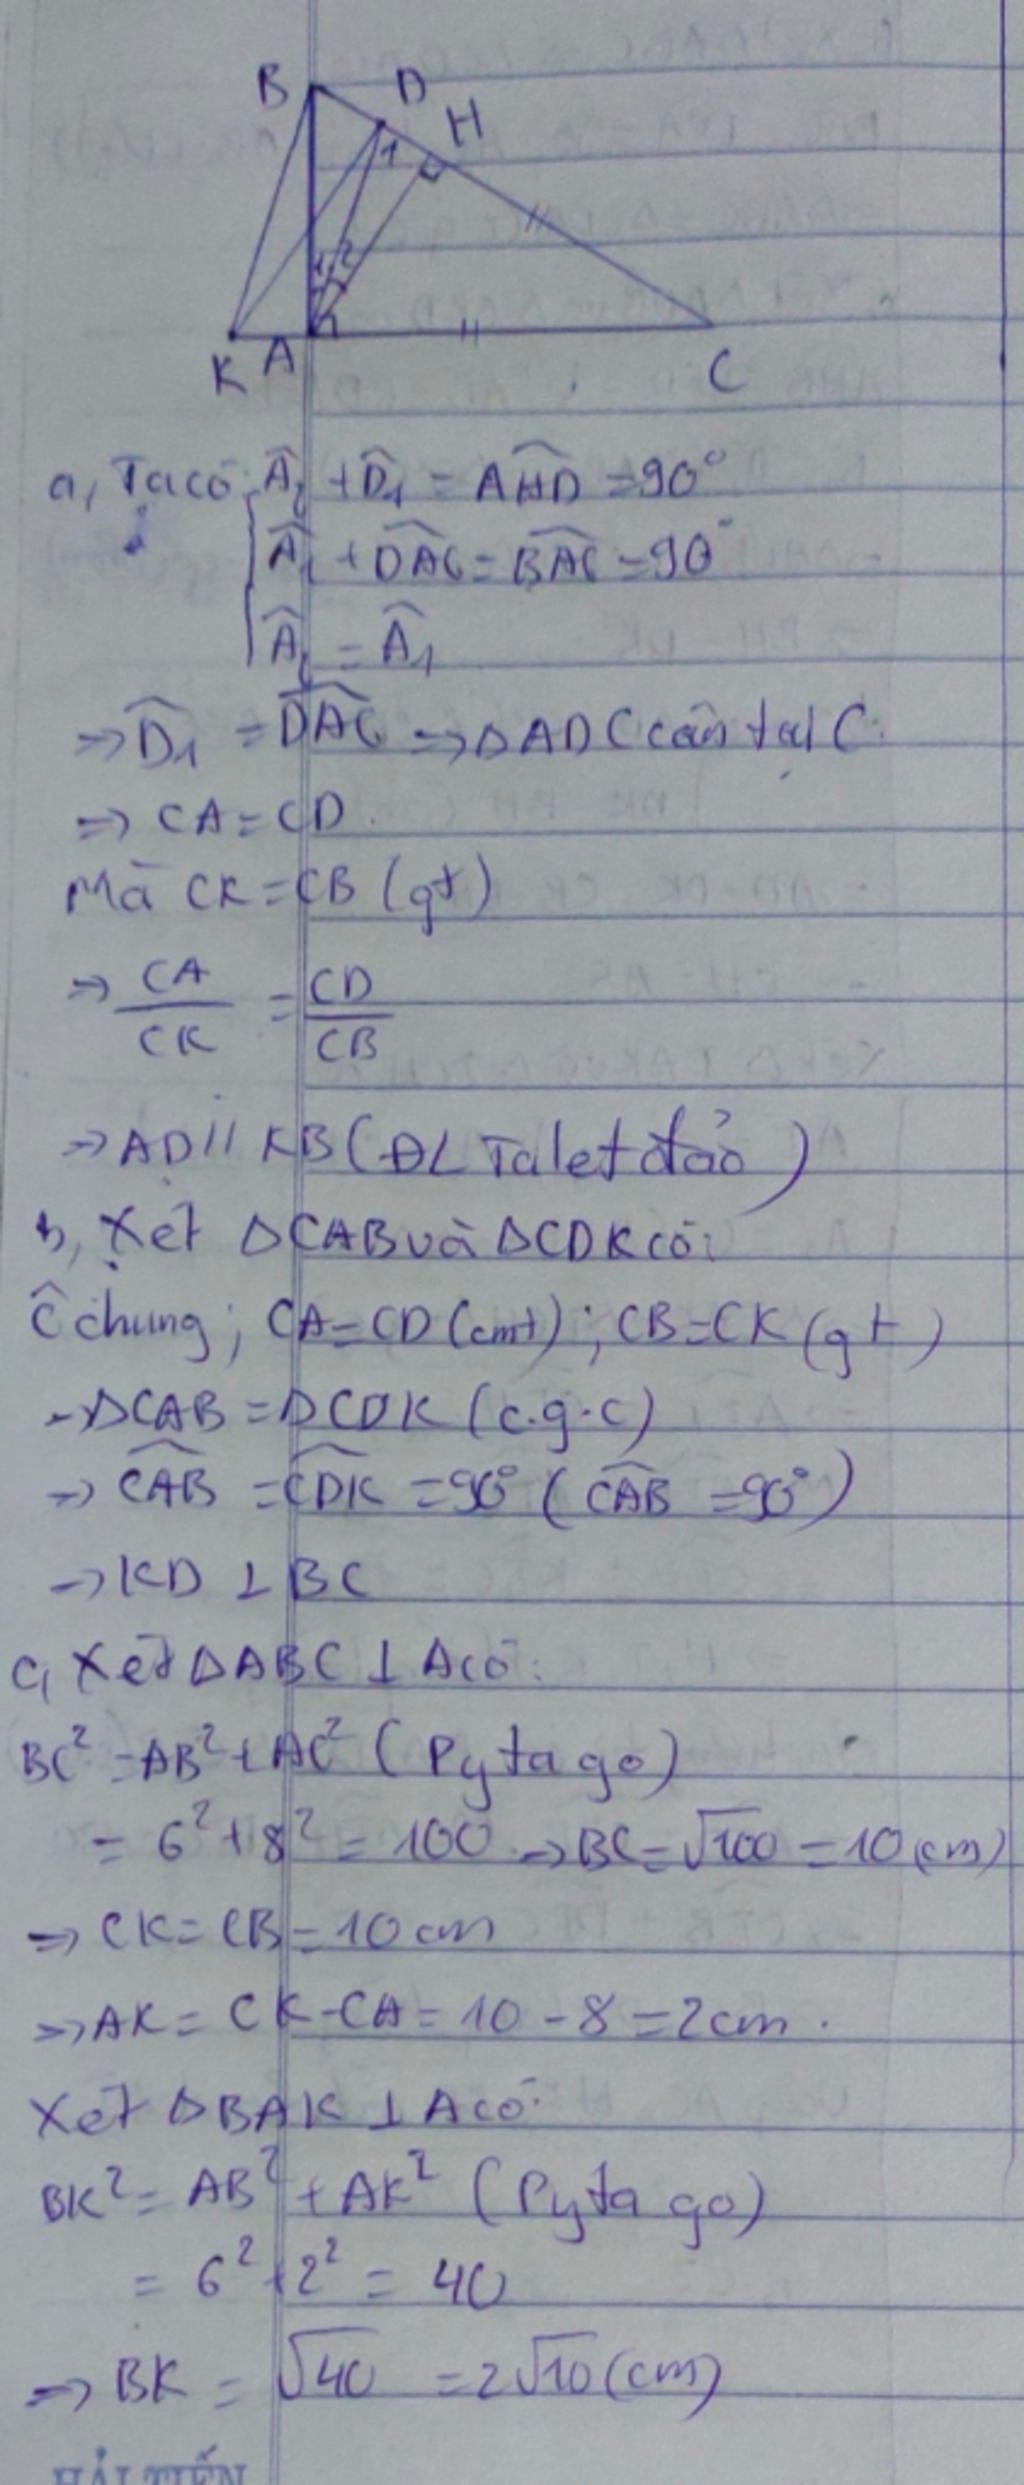 B D H
1
1 2
K A C
a, Ta có: Â₂ + D̂₁ = AĤD = 90°
Â₁ + DÂC = BÂC = 90°
Â₂ = Â₁
=> D̂₁ = DÂC => ΔADC cân tại C.
=> CA = CD.
Mà CK = CB (gt)
=> CA/CK = CD/CB
=> AD // KB (ĐL Talet đảo)
b, Xét ΔCAB và ΔCDK có:
Ĉ chung; CA = CD (cmt); CB = CK (gt)
-> ΔCAB = ΔCDK (c.g.c)
=> CÂB = CD̂K = 90° (CÂB = 90°)
-> KD ⊥ BC
c, Xét ΔABC ⊥ A có:
BC² = AB² + AC² (Pytago)
= 6² + 8² = 100 -> BC = √100 = 10 (cm)
=> CK = CB = 10 cm
=> AK = CK - CA = 10 - 8 = 2cm.
Xét ΔBAK ⊥ A có:
BK² = AB² + AK² (Pytago)
= 6² + 2² = 40
=> BK = √40 = 2√10 (cm)
HẢI TIẾN